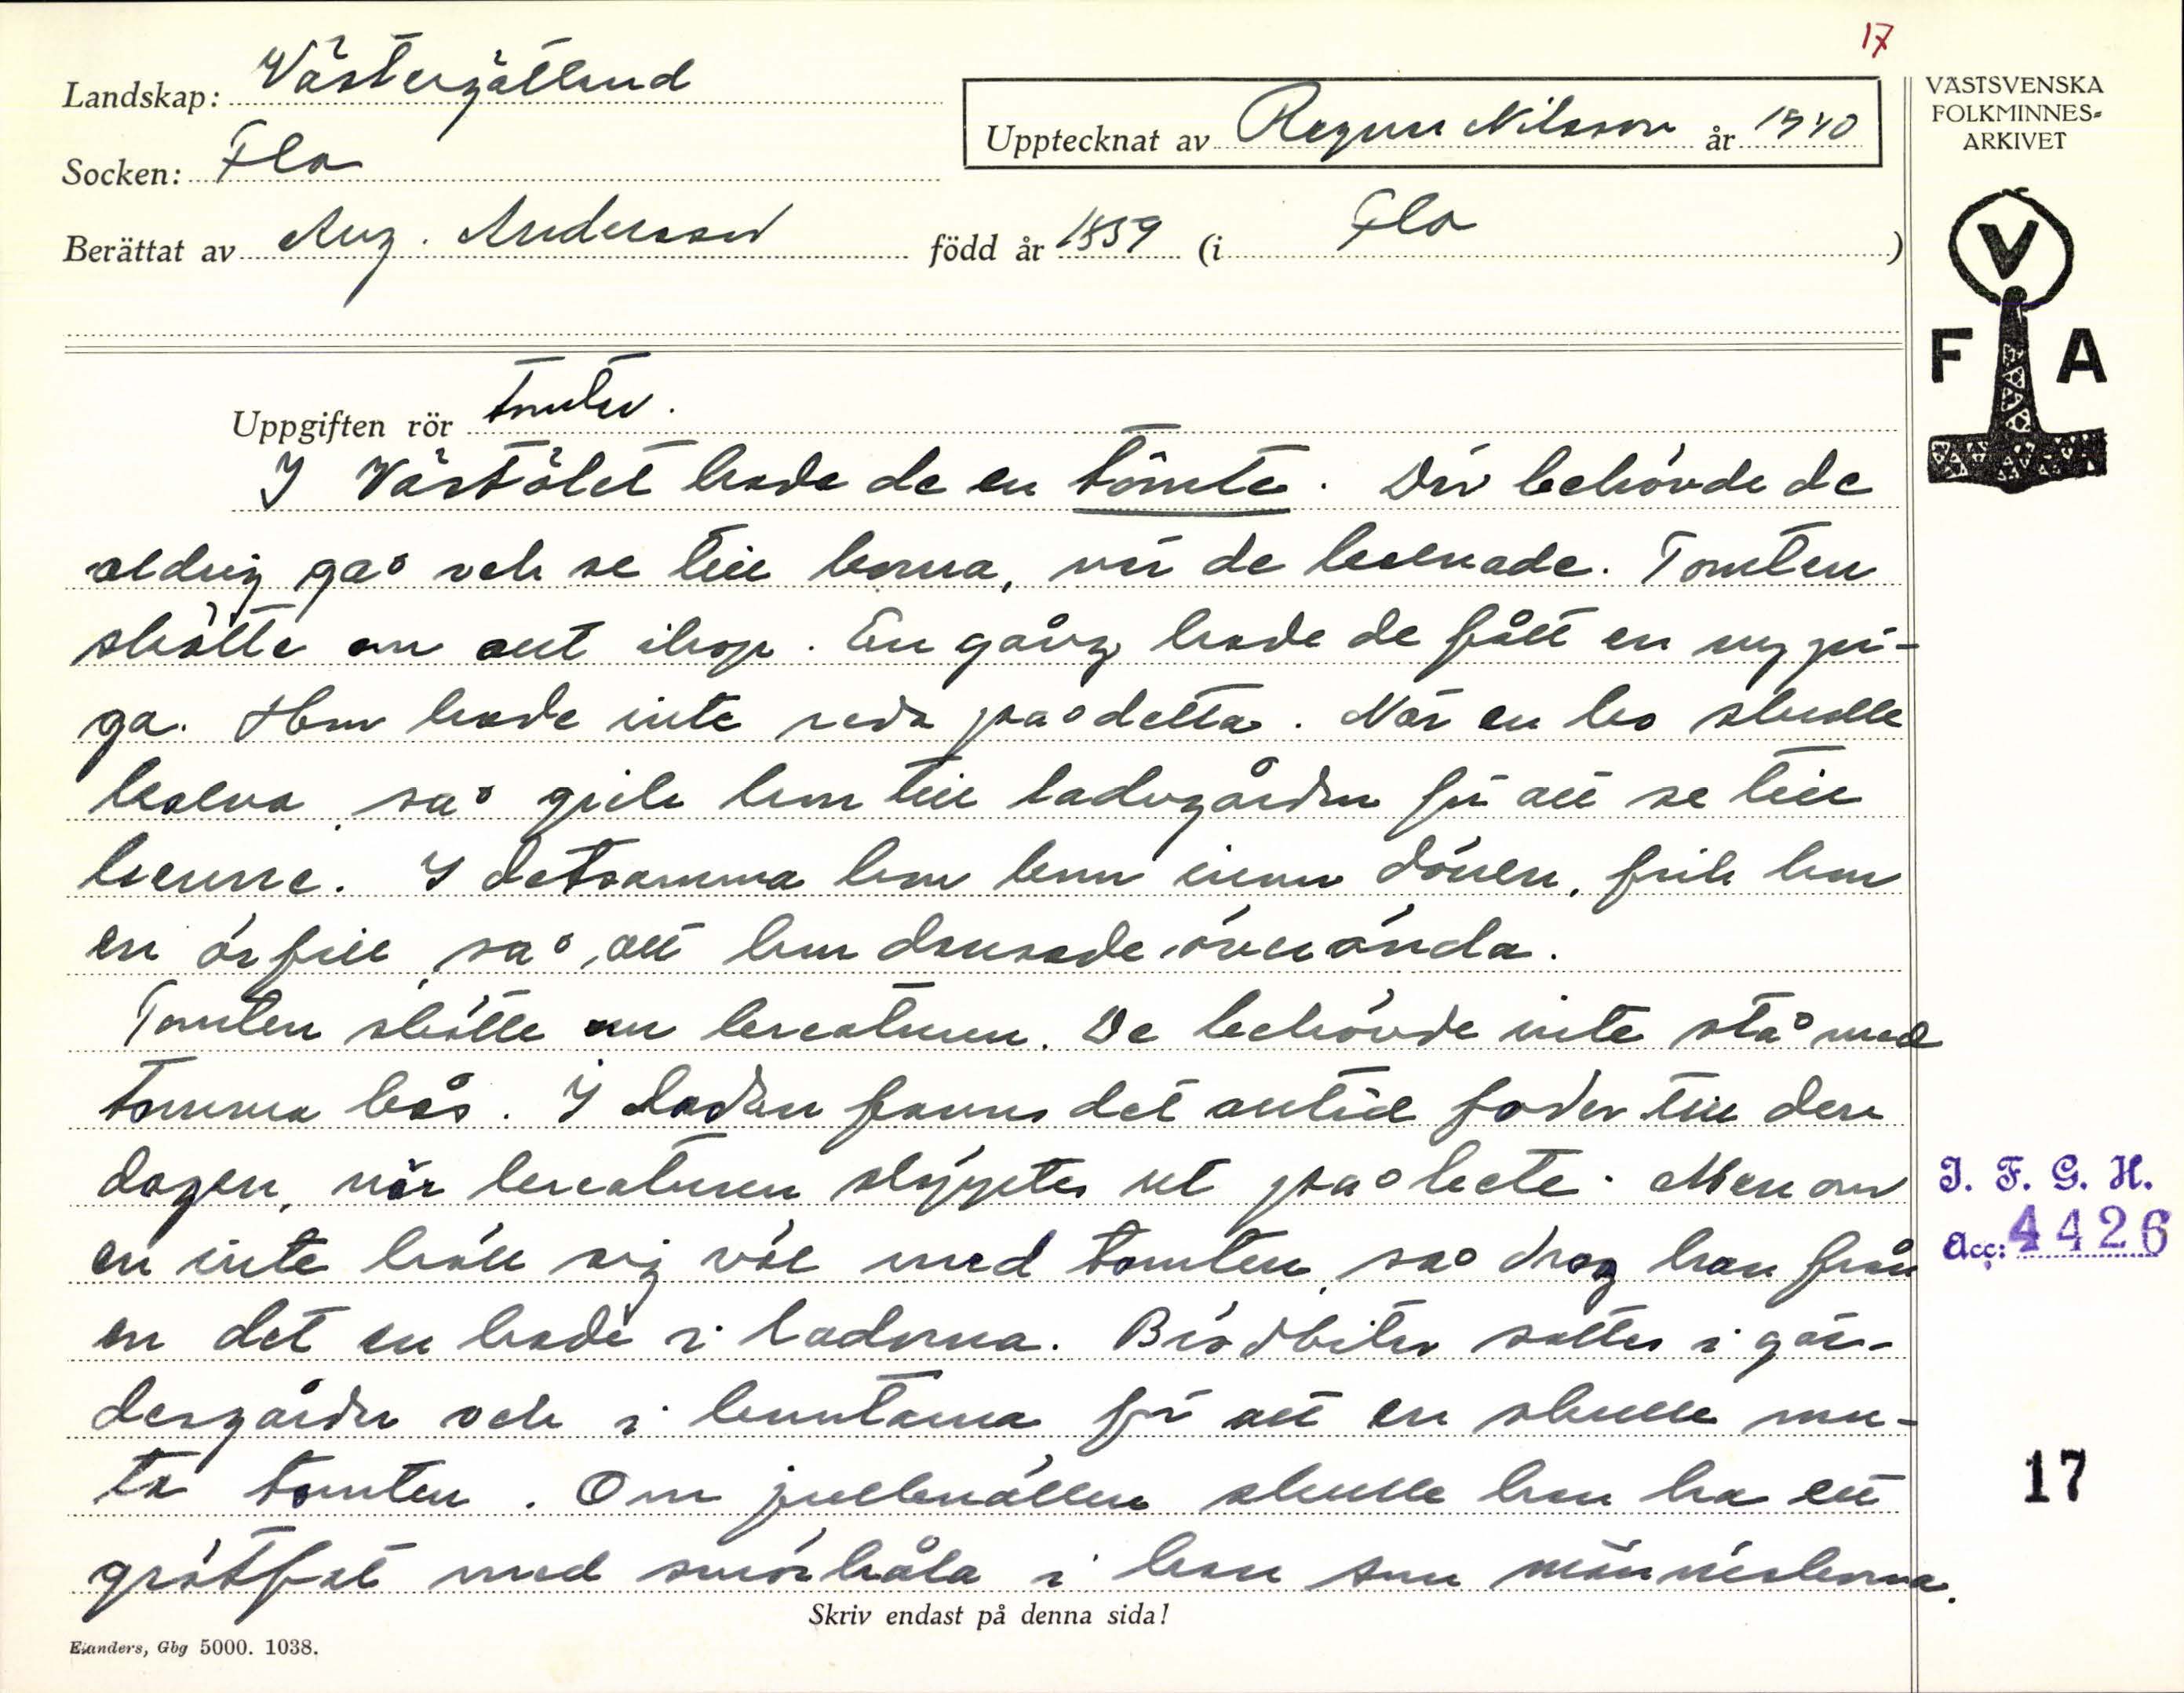 17
Landskap: Västergötland
Upptecknat av Ragnar Nilsson år 1940
VÄSTSVENSKA
FOLKMINNES-
ARKIVET
Socken: Flo
Berättat av Aug. Andersson född år 1859 (i Flo)
V
F A
Uppgiften rör Tomten.
I Västölet hade de en tomte. Där behövde de
aldrig gå och se till korna, när de kalvade. Tomten
skötte om allt ihop. En gång hade de fått en ny pi-
ga. Hon hade inte reda på detta. När en ko skulle
kalva, så gick hon till ladugården för att se till
henne. I detsamma hon kom innom dörren, fick hon
en örfill, så att hon dansade överända.
Tomten skötte om kreaturen. De behövde inte stå med
tomma bås. I ladan fanns det alltid foder till den
dagen, när kreaturen släpptes ut på bete. Men om
en inte höll sig väl med tomten, så drog han från
en det en hade i ladorna. Brödbitar sattes i gär-
desgårdar och i knutarna för att en skulle mu-
ta tomten. Om julkvällen skulle han ha ett
grötfat med smörhåla i han som människorna.
I. F. G. H.
Acc: 4426
17
Skriv endast på denna sida!
Elanders, Gbg 5000. 1038.